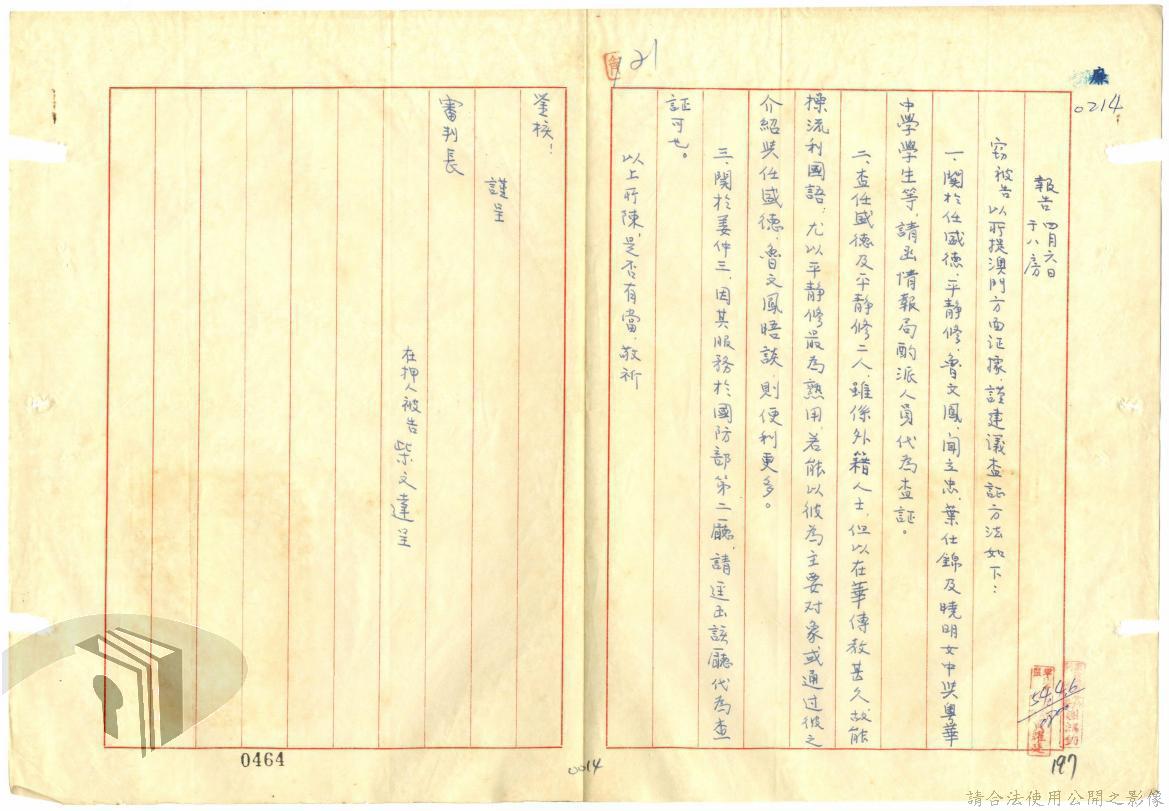 0214
報告 四月六日
于八房
竊被告以所提澳門方面証據,謹建議查証方法如下:
一、關於任盛德,平靜修,魯文鳳,聞立忠,葉仕錦及曉明女中與粵華
中學學生等,請函情報局酌派人員代為查証。
二、查任盛德及平靜修二人,雖係外籍人士,但以在華傳教甚久,故能
操流利國語,尤以平靜修最為熟用,若能以彼為主要対象或通过彼之
介紹與任盛德,魯文鳳晤談,則便利更多。
三、關於姜仲三,因其服務於國防部第二廳,請逕函該廳代為查
証可也。
以上所陳,是否有當,敬祈
鉴核!
謹呈
審判長
在押人被告 柴文達呈
21
54.4.6
197
0014
0464
請合法使用公開之影像